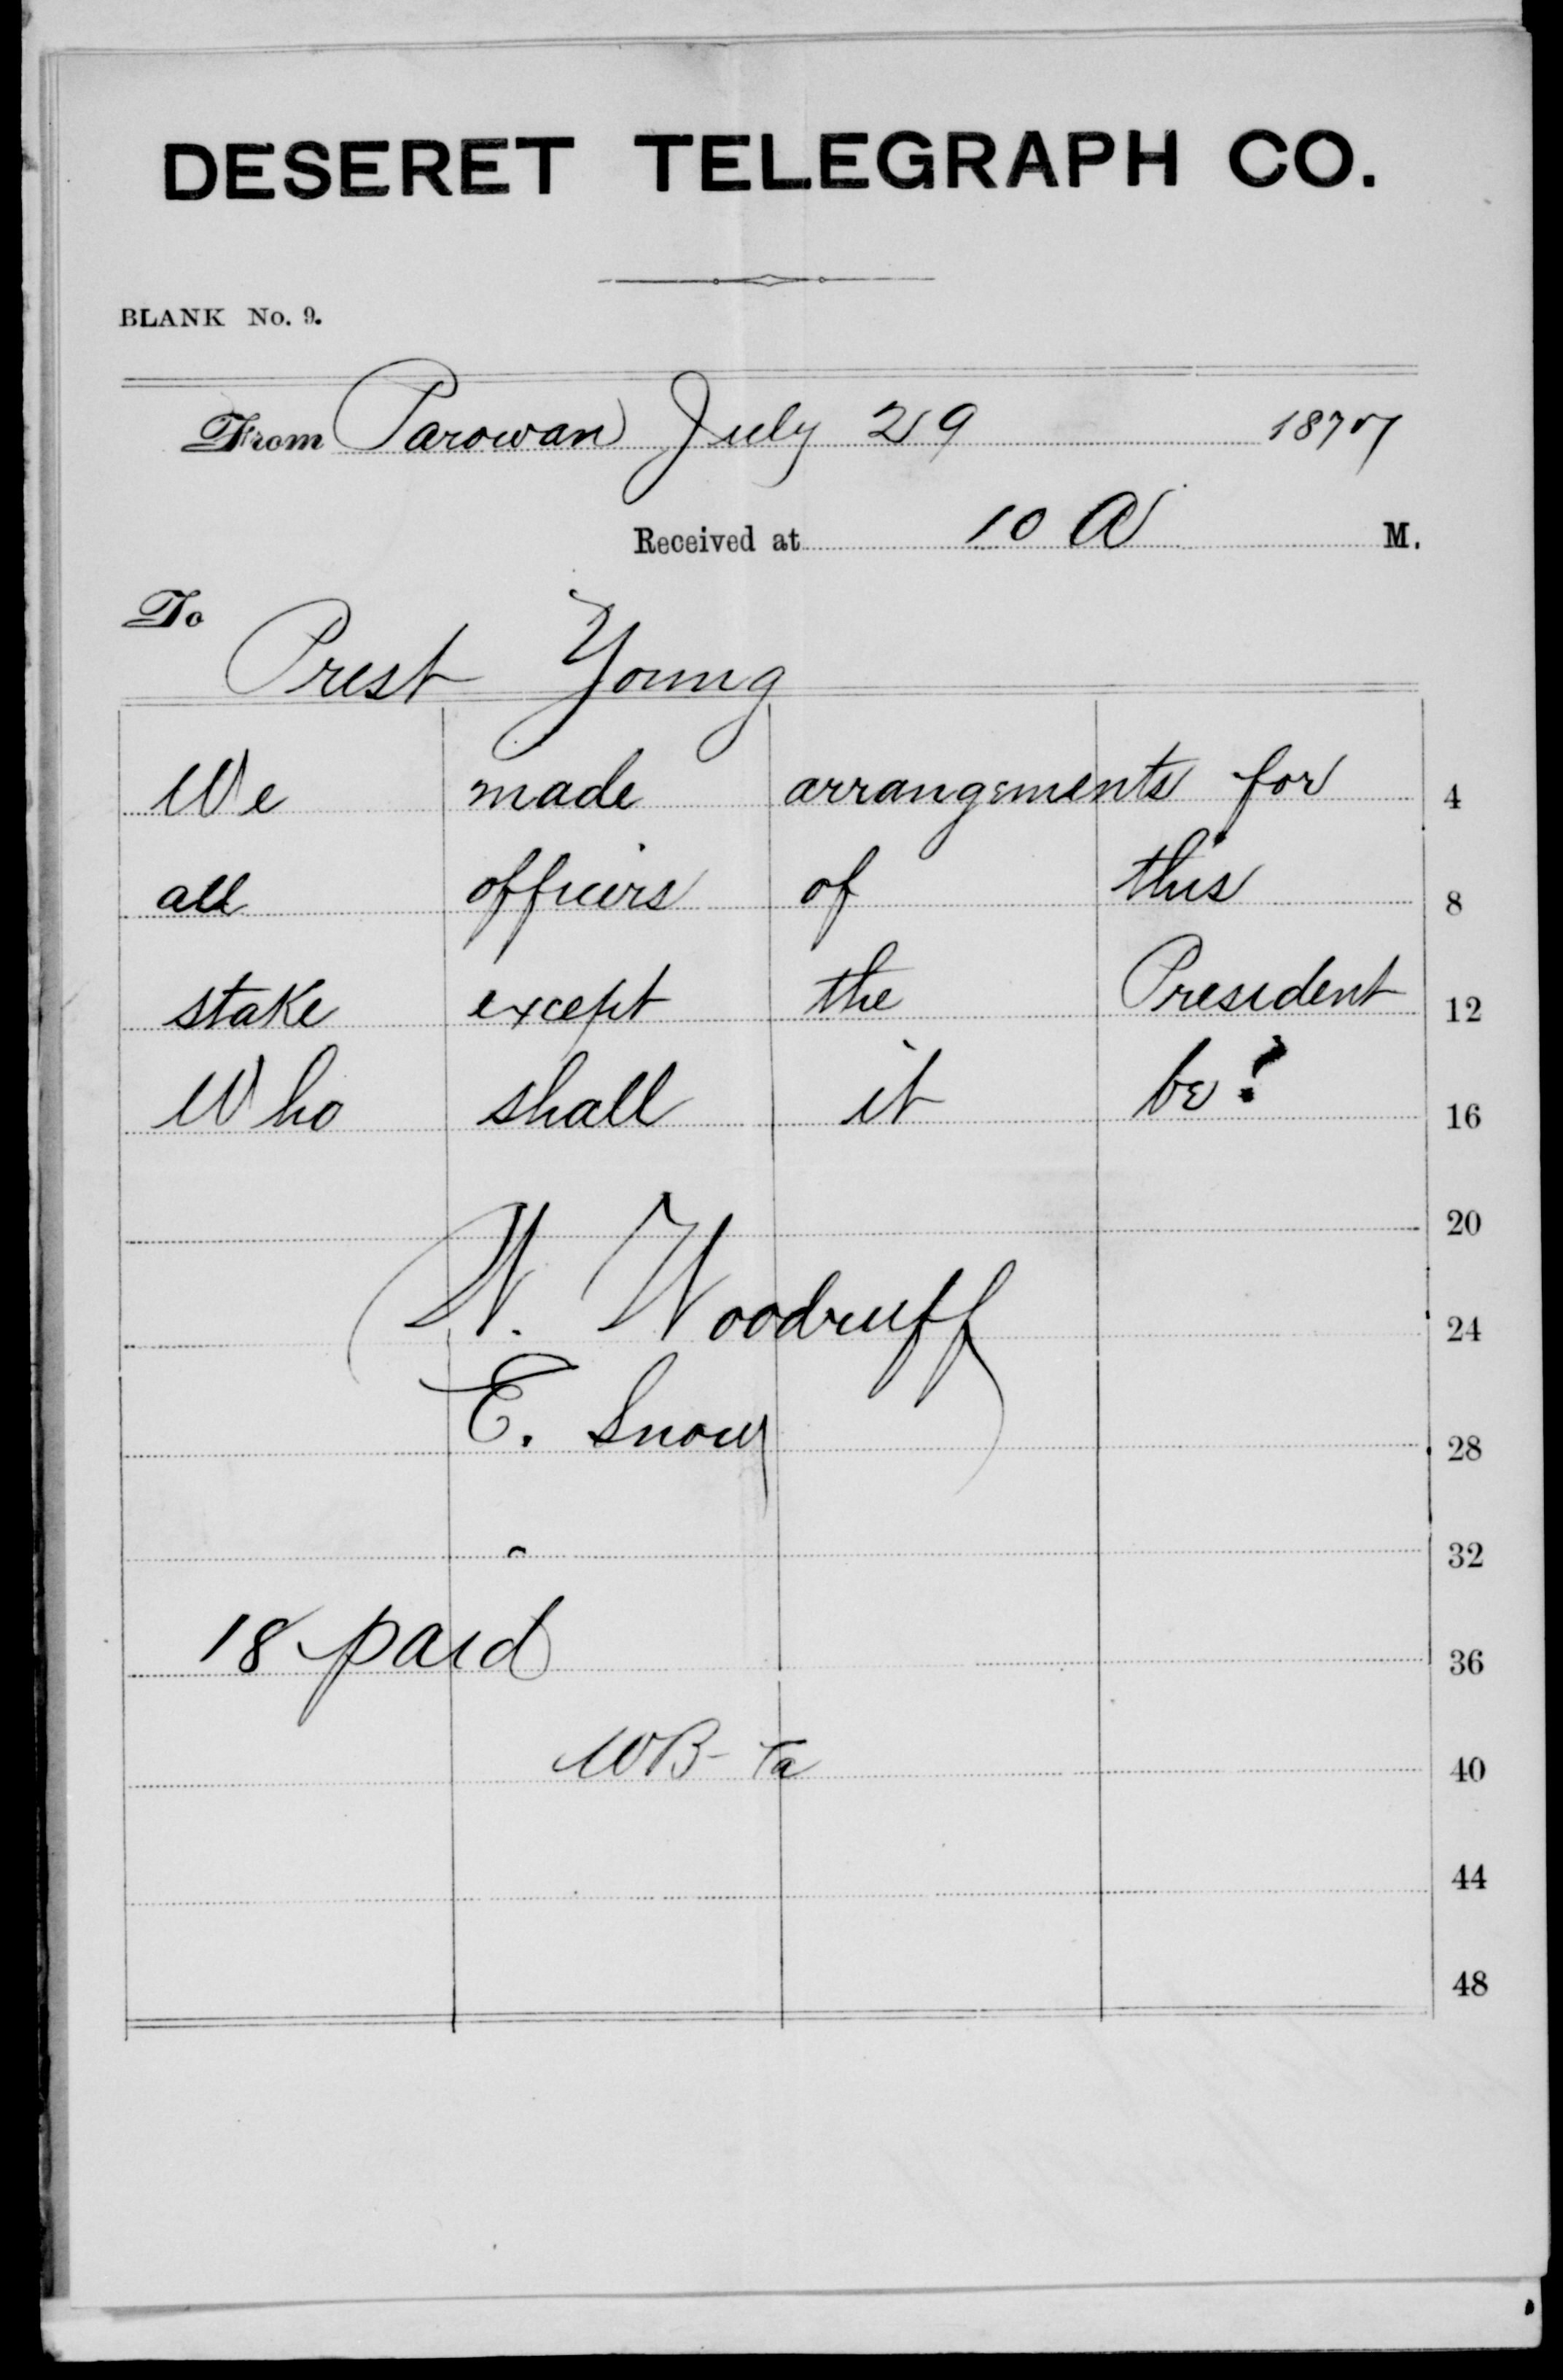 DESERET TELEGRAPH CO.
BLANK No. 9.
From Parowan July 29 1877
Received at 10 A M.
To
Prest Young
We made arrangements for 4
all officers of this 8
stake except the President 12
Who shall it be? 16
20
W. Woodruff
24
E. Snow
28
32
18 paid
36
WB- Ta
40
44
48